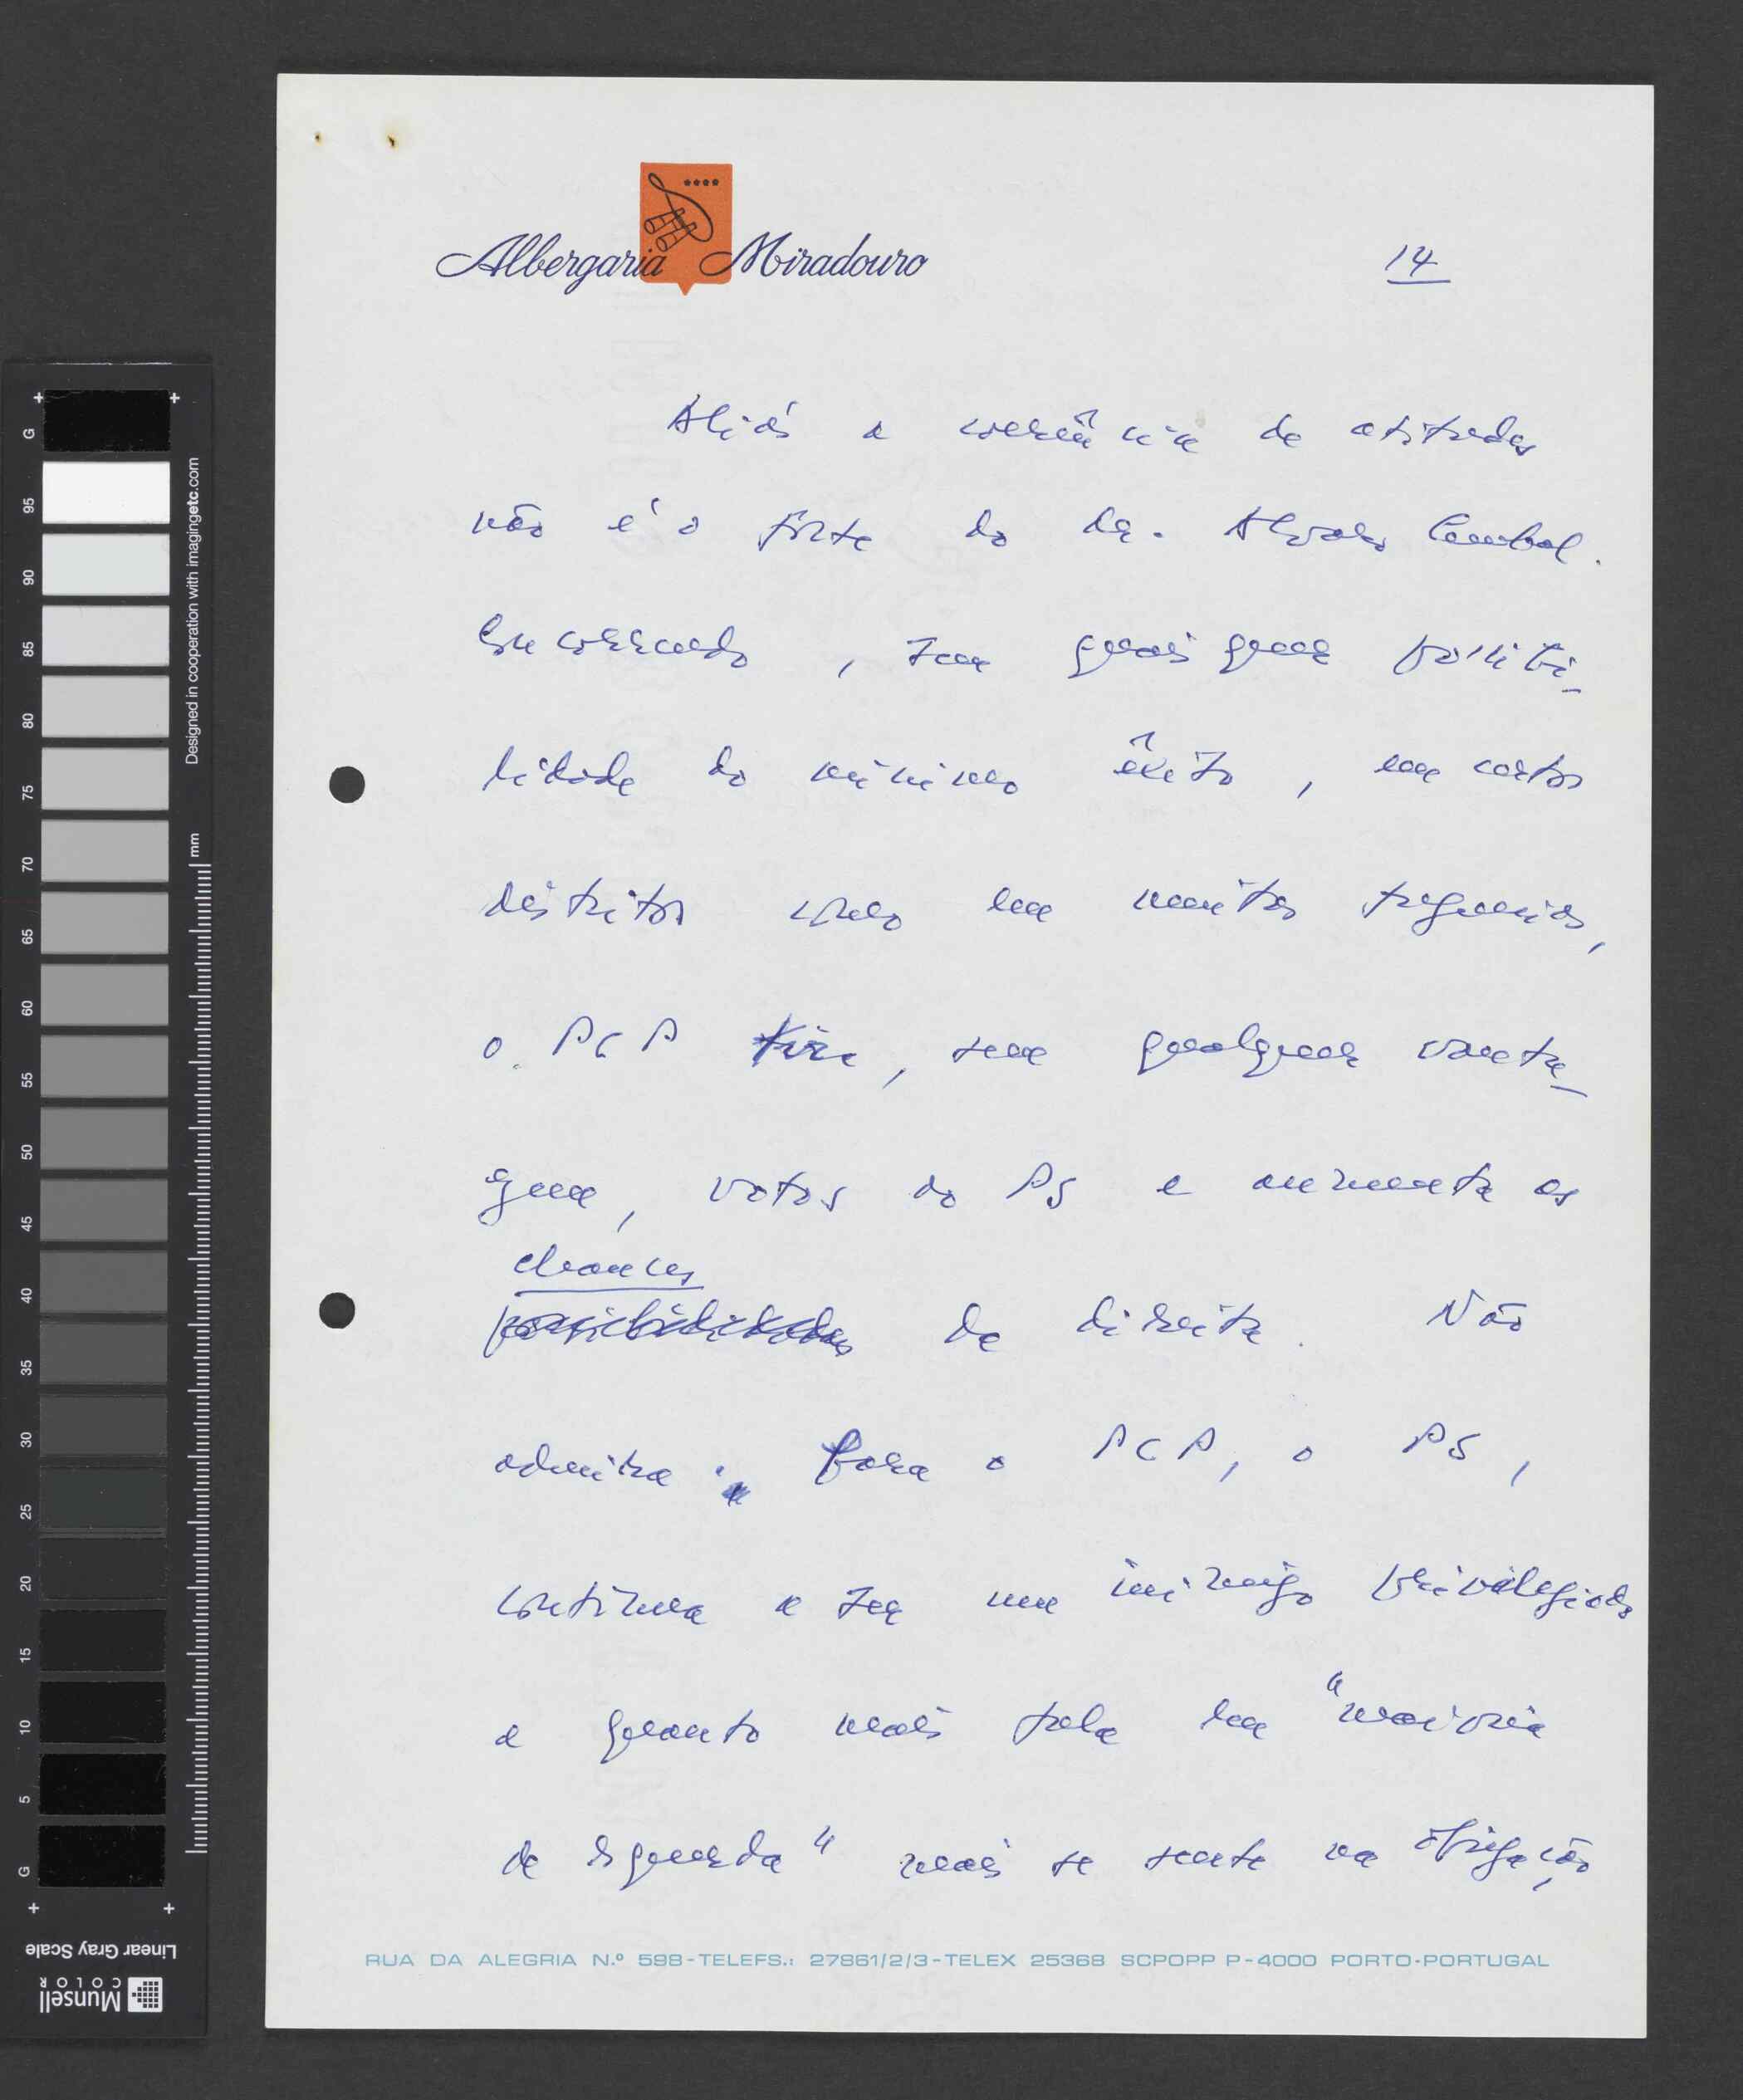 Albergaria Miradouro
14
Aliás a coerência de atitudes
não é o forte do dr. Alvaro Cunhal.
Concorrendo, sem quaisquer possibi-
lidade do mínimo êxito, em certos
distritos como em muitas freguesias,
o PCP tira, sem qualquer vanta-
gem, votos ao PS e aumenta as
chances
possibilidades da direita. Não
admira: para o PCP, o PS,
continua a ser um inimigo privilegiado
e quanto mais fala em "maioria
de esquerda" mais se sente na obrigação
RUA DA ALEGRIA N.º 598-TELEFS.: 27861/2/3-TELEX 25368 SCPOPP P-4000 PORTO-PORTUGAL
G 95 90 85 80 75 70 65 60 55 50 45 40 35 30 25 20 15 10 5 G
Designed in cooperation with imagingetc.com
mm
Linear Gray Scale
Munsell
COLOR